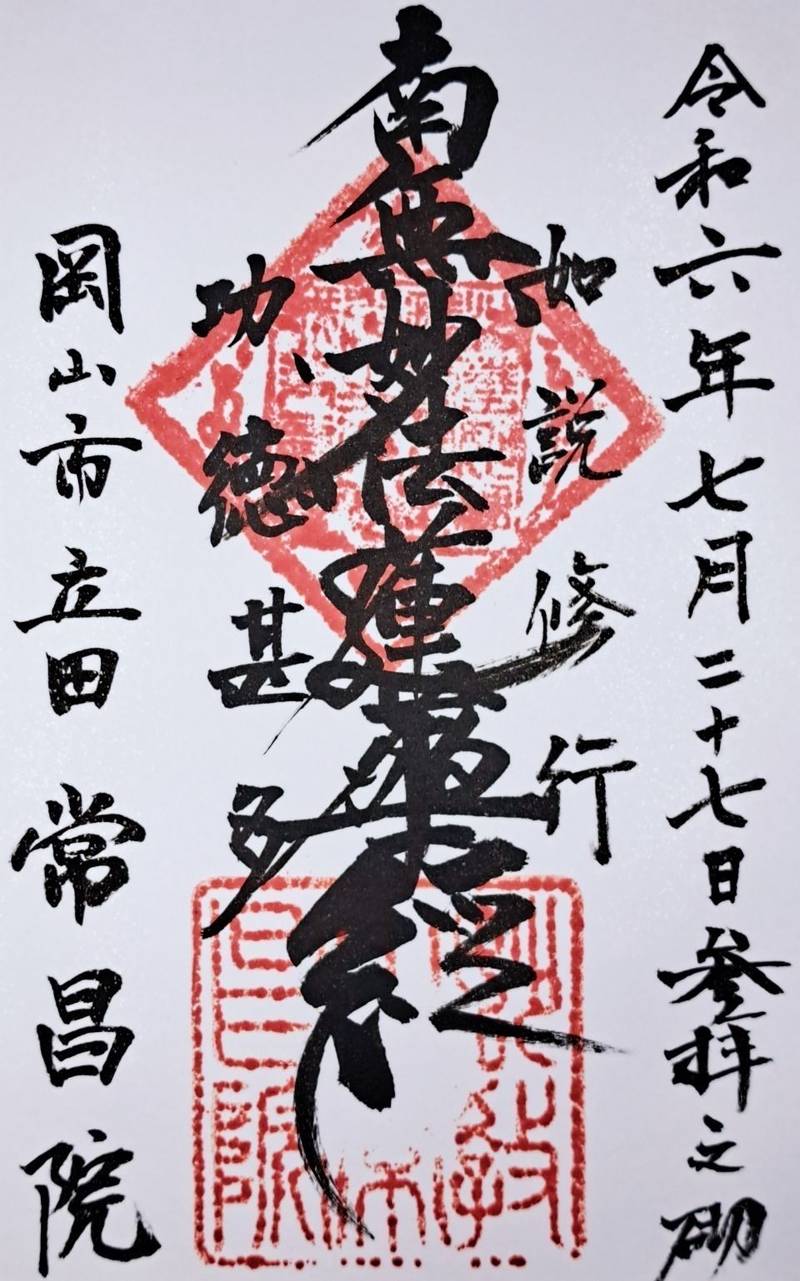 令和六年七月二十七日参拝之砌
如説修行
南無妙法蓮華経
功徳甚多
岡山市立田 常昌院